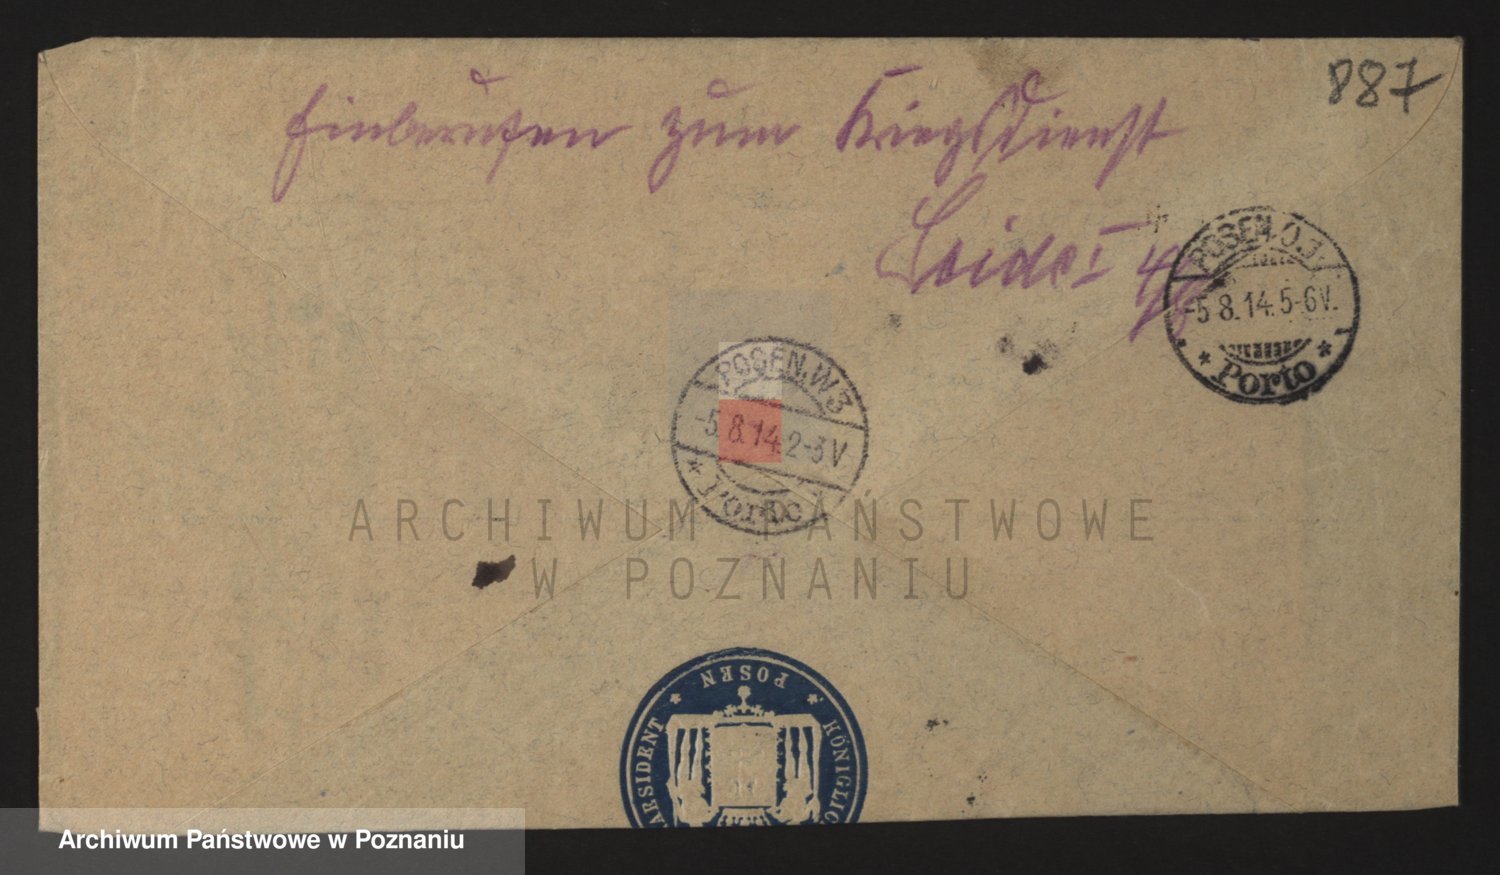 887
Einberufen zum Kriegsdienst
POSEN.O.3.
-5.8.14.5-6V.
* Porto *
POSEN.W3
-5.8.14.2-3V
* Porto
ARCHIWUM PAŃSTWOWE
W POZNANIU
ARSIDENT * POSEN * KÖNIGLIC
Archiwum Państwowe w Poznaniu